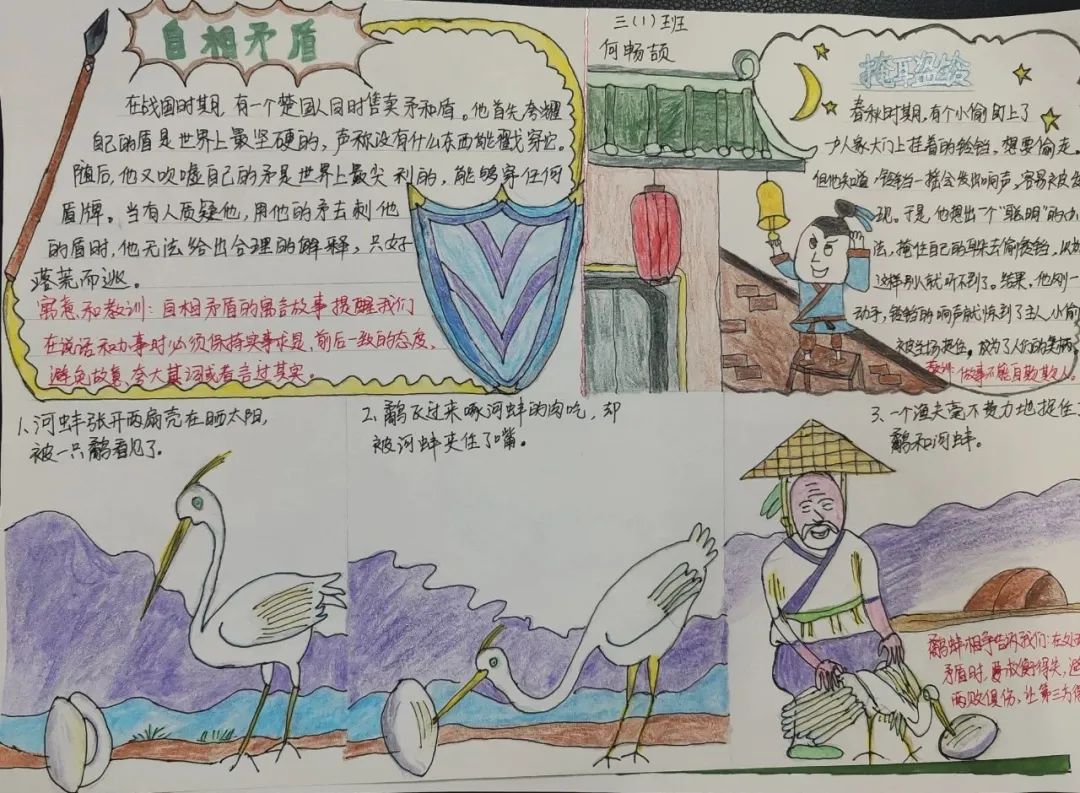 自相矛盾
在战国时期,有一个楚国人同时售卖矛和盾。他首先夸耀
自己的盾是世界上最坚硬的,声称没有什么东西能戳穿它。
随后,他又吹嘘自己的矛是世界上最尖利的,能够穿任何
盾牌。当有人质疑他,用他的矛去刺他
的盾时,他无法给出合理的解释,只好
落荒而逃。
寓意和教训:自相矛盾的寓言故事提醒我们
在说话和办事时必须保持实事求是,前后一致的态度,
避免故意夸大其词或者言过其实。
三(1)班
何畅颉
掩耳盗铃
春秋时期,有个小偷盯上了
户人家大门上挂着的铃铛,想要偷走。
但他知道,铃铛一摇会发出响声,容易被发
现。于是,他想出一个“聪明”的办
法,掩住自己的耳朵去偷铃铛,以为
这样别人就听不到了。结果,他刚一
动手,铃铛的响声就惊到了主人,小偷
被当场捉住,成为了人们的笑柄
教训:做事不能自欺欺人。
1、河蚌张开两扇壳在晒太阳,
被一只鹬看见了。
2、鹬飞过来啄河蚌的肉吃,却
被河蚌夹住了嘴。
3、一个渔夫毫不费力地捉住
鹬和河蚌。
鹬蚌相争告诉我们:在
矛盾时,要权衡得失,
两败俱伤,让第三方